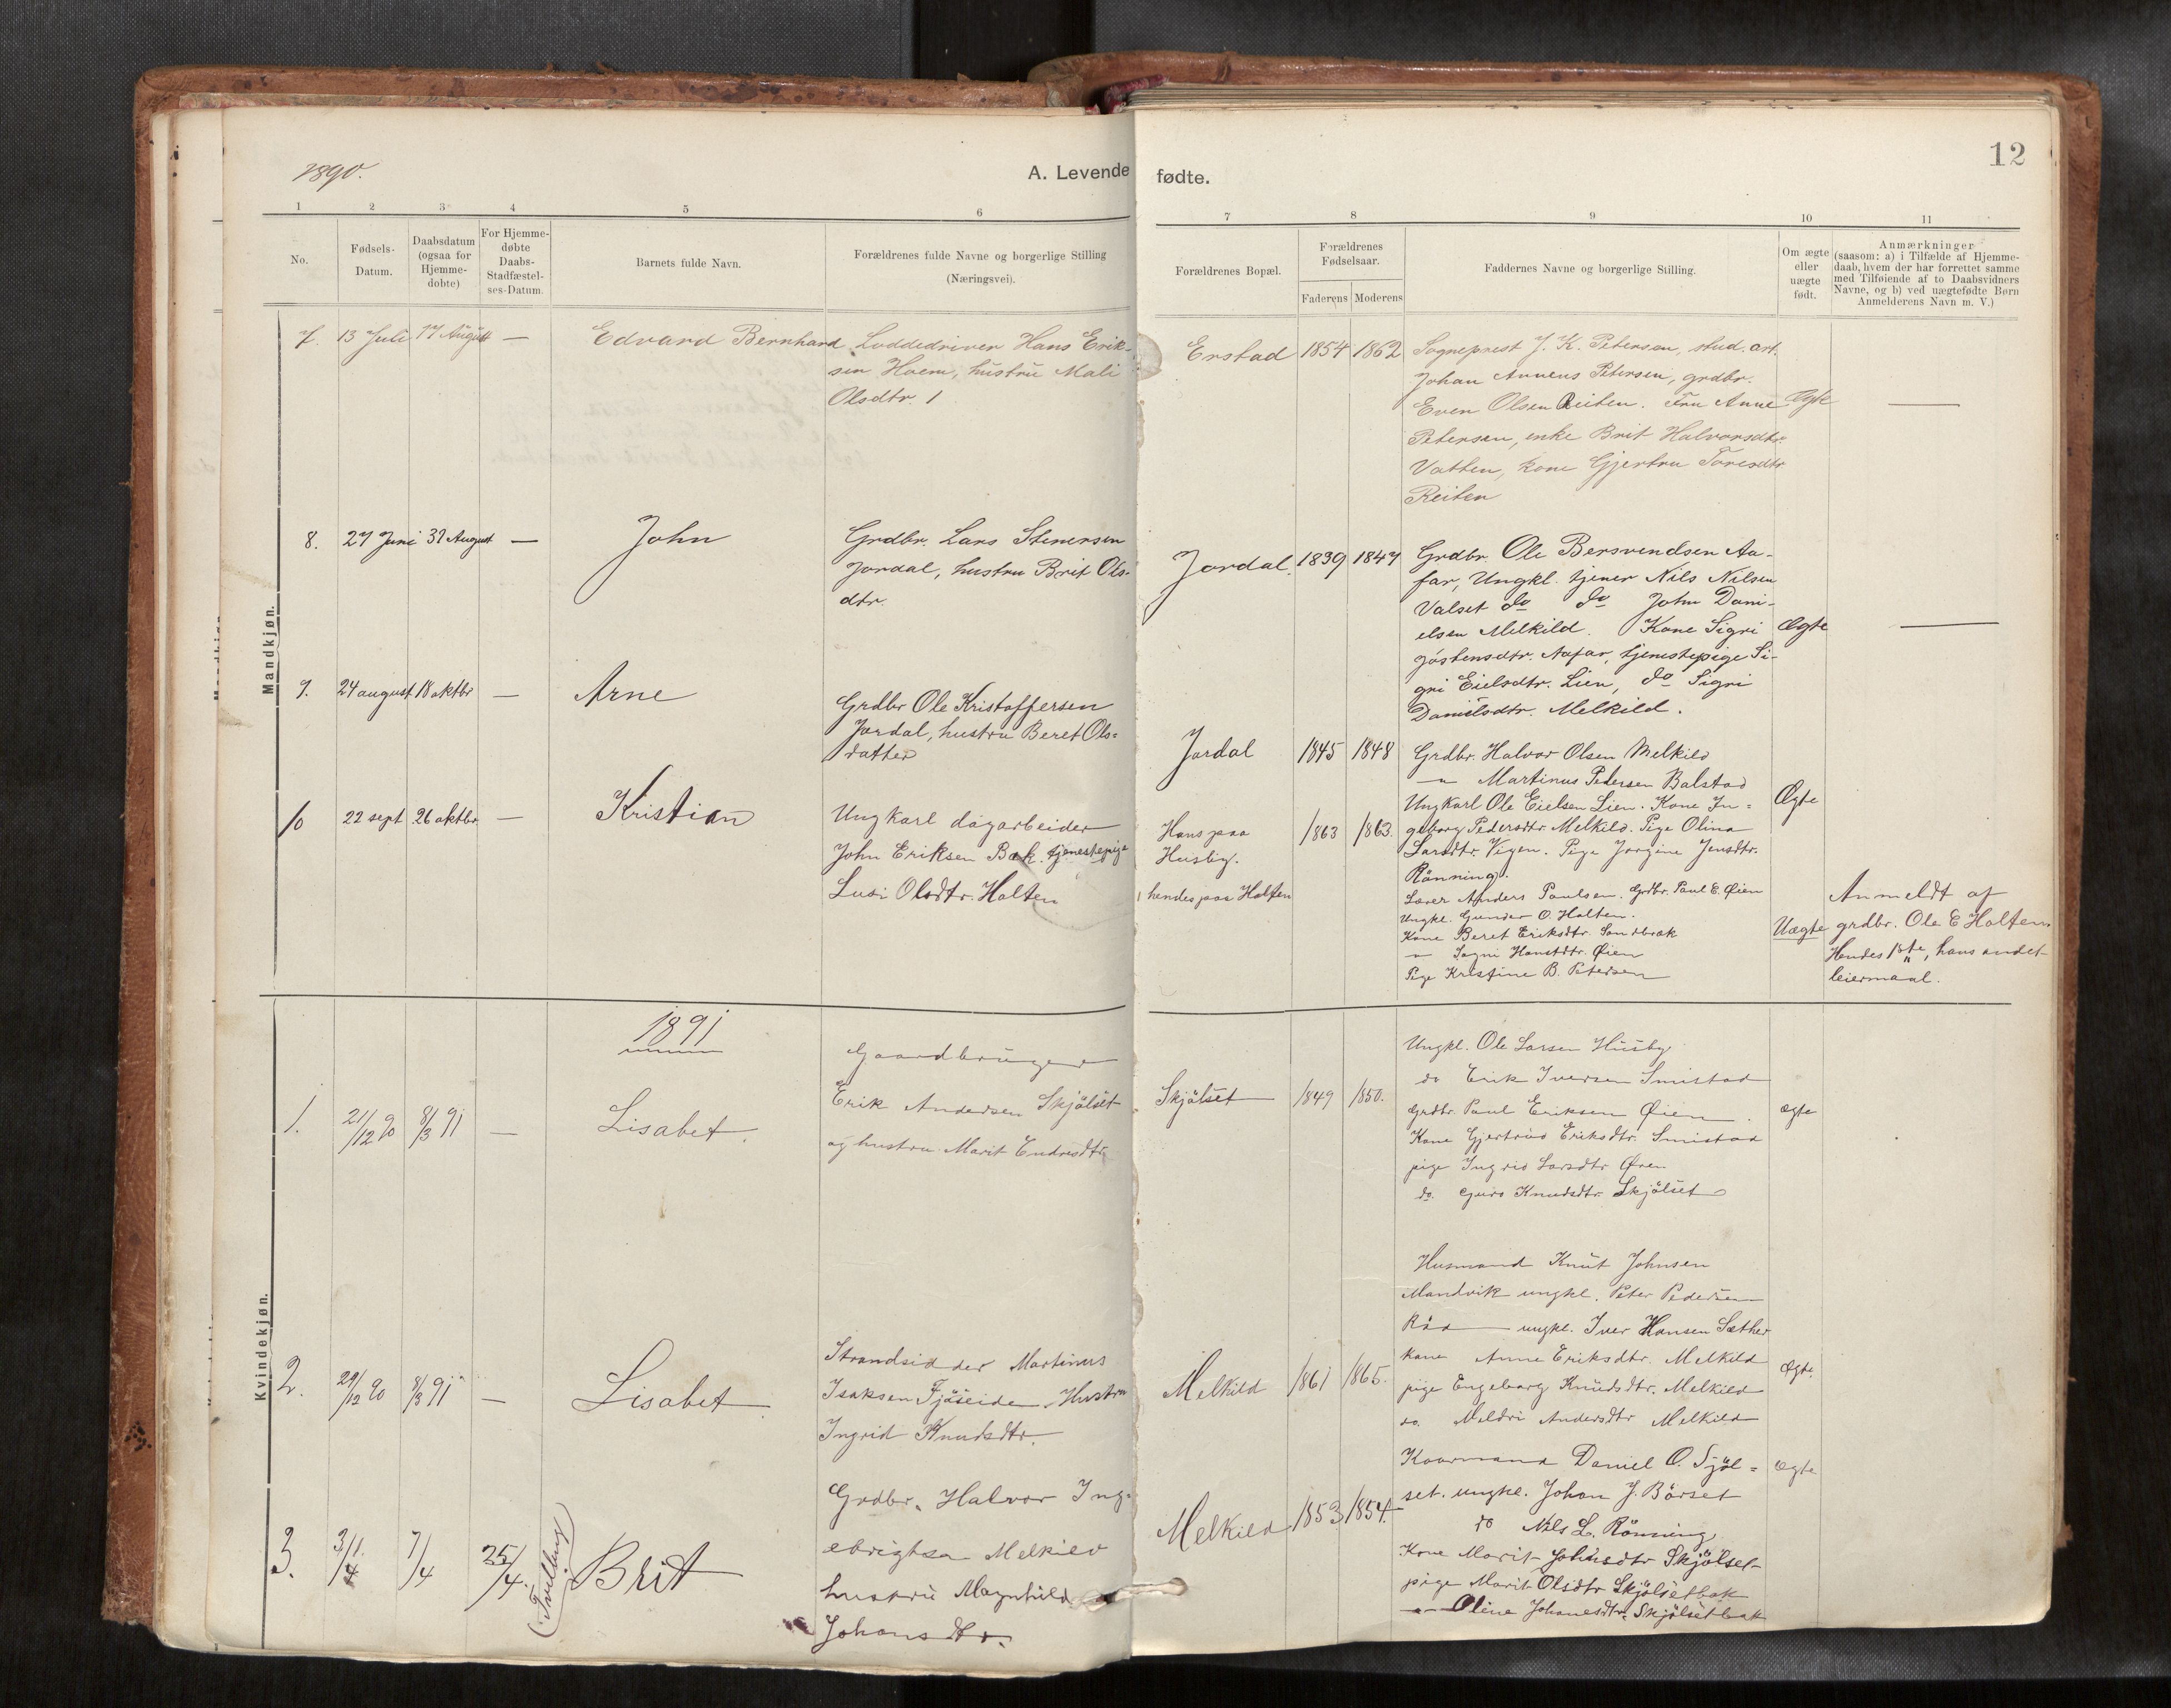 1890.
A. Levende fødte.
12
1 2 3 4 5 6 7 8 9 10 11
No.
Fødsels-Datum.
Daabsdatum (ogsaa for Hjemme-døbte)
For Hjemme-døbte Daabs-Stadfæstel-ses-Datum.
Barnets fulde Navn.
Forældrenes fulde Navne og borgerlige Stilling
(Næringsvei).
Forældrenes Bopæl.
Forældrenes Fødselsaar.
Faderens Moderens
Faddernes Navne og borgerlige Stilling.
Om ægte eller uægte født.
Anmærkninger
(saasom: a) i Tilfælde af Hjemme-
daab, hvem der har forrettet samme
med Tilføiende af to Daabsvidners
Navne, og b) ved uægtefødte Børn
Anmelderens Navn m. V.)
Mandkjøn.
7. 13 Juli 17 August — Edvard Bernhard
Loddedriver Hans Erik-
sen Hoem, hustru Mali
Olsdtr. 1
Erstad 1854 1862
Sogneprest J. K. Petersen, stud. art.
Johan Annens Petersen, grdbr.
Even Olsen Reiten. Fru Anne
Petersen, enke Brit Halvorsdtr.
Vatten, kone Gjertru Toresdtr
Reiten
Ægte —
8. 27 Juni 31 August — John
Grdbr. Lars Stenersen
Jordal, hustru Brit Ols-
dtr.
Jordal. 1839 1847
Grdbr. Ole Bersvendsen Aa-
far, Ungkl. tjener Nils Nilsen
Valset do do John Dani-
elsen Melkild. Kone Sigri
Jostensdtr. Aafar, tjenestepige Si-
gri Eielsdtr. Lien, do Sigri
Danielsdtr. Melkild.
Ægte —
9. 24 august 18 oktbr — Arne
Grdbr Ole Kristoffersen
Jordal, hustru Beret Ols=
datter
Jordal 1845 1848
Grdbr. Halvor Olsen Melkild
— " Martinus Pedersen Balstad
Ungkarl Ole Eielsen Lien. Kone In=
geborg Pedersdtr. Melkild. Pige Olina
Larsdtr. Vigen. Pige Jorgine Jensdtr.
Rönning.
Ægte
10 22 sept 26 oktbr. — Kristian
Ungkarl dagarbeider
John Eriksen Bak. tjenestepige
Lusi Olsdtr. Holten
Hans paa
Husby.
hendes paa Holten
1863 1863.
Lærer Anders Paulsen. Grdbr. Paul E. Øien
Ungkl. Gunder O. Holten.
Kone Beret Eriksdtr. Sandbrak
— " Sigri Hansdtr. Øien
Pige Kristine B. Petersen
Uægte
Anmeldt af
grdbr. Ole E Holten.
Hendes 1ste, hans andet
leiermaal.
1891
Kvindekjøn.
1. 21/12 90 8/3 91 — Lisabet.
Gaardbruger
Erik Andersen Skjölset
og hustru Marit Endresdtr.
Skjölset 1849 1850.
Ungkl. Ole Larsen Husby
do Erik Iversen Smistad
Grdbr. Paul Eriksen Øien.
Kone Gjertrud Eriksdtr. Smistad
pige Ingrid Larsdtr Øien
do. Guro Knudsdtr. Skjölset
ægte
2. 29/12 90 8/3 91 — Lisabet.
Strandsidder Martinus
Isaksen Fjöseide. Hustru
Ingrid Knudsdtr.
Melkild 1861 1865.
Husmand Knut Johnsen
Mandvik ungkl. Peter Pedersen
Röd — ungkl. Iver Hansen Sæther
kone Anne Eriksdtr. Melkild
pige Engeborg Knudsdtr. Melkild
do. Meldri Andersdtr Melkild
Ægte.
3. 3/1. 7/4 25/4. (Tvilling) Brit
Grdbr. Halvor Ing-
ebrigtsen Melkild
hustru Magnhild
Johansdtr.
Melkild 1853 1854.
Kaarmand Daniel O. Sjöl=
set. ungkl. Johan J. Börset
do Nils L. Rönning
Kone Marit Johnsdtr Skjölset
pige Marit Olsdtr Skjölsetbak
— " — Oline Johanesdtr. Skjölsetbak
Ægte